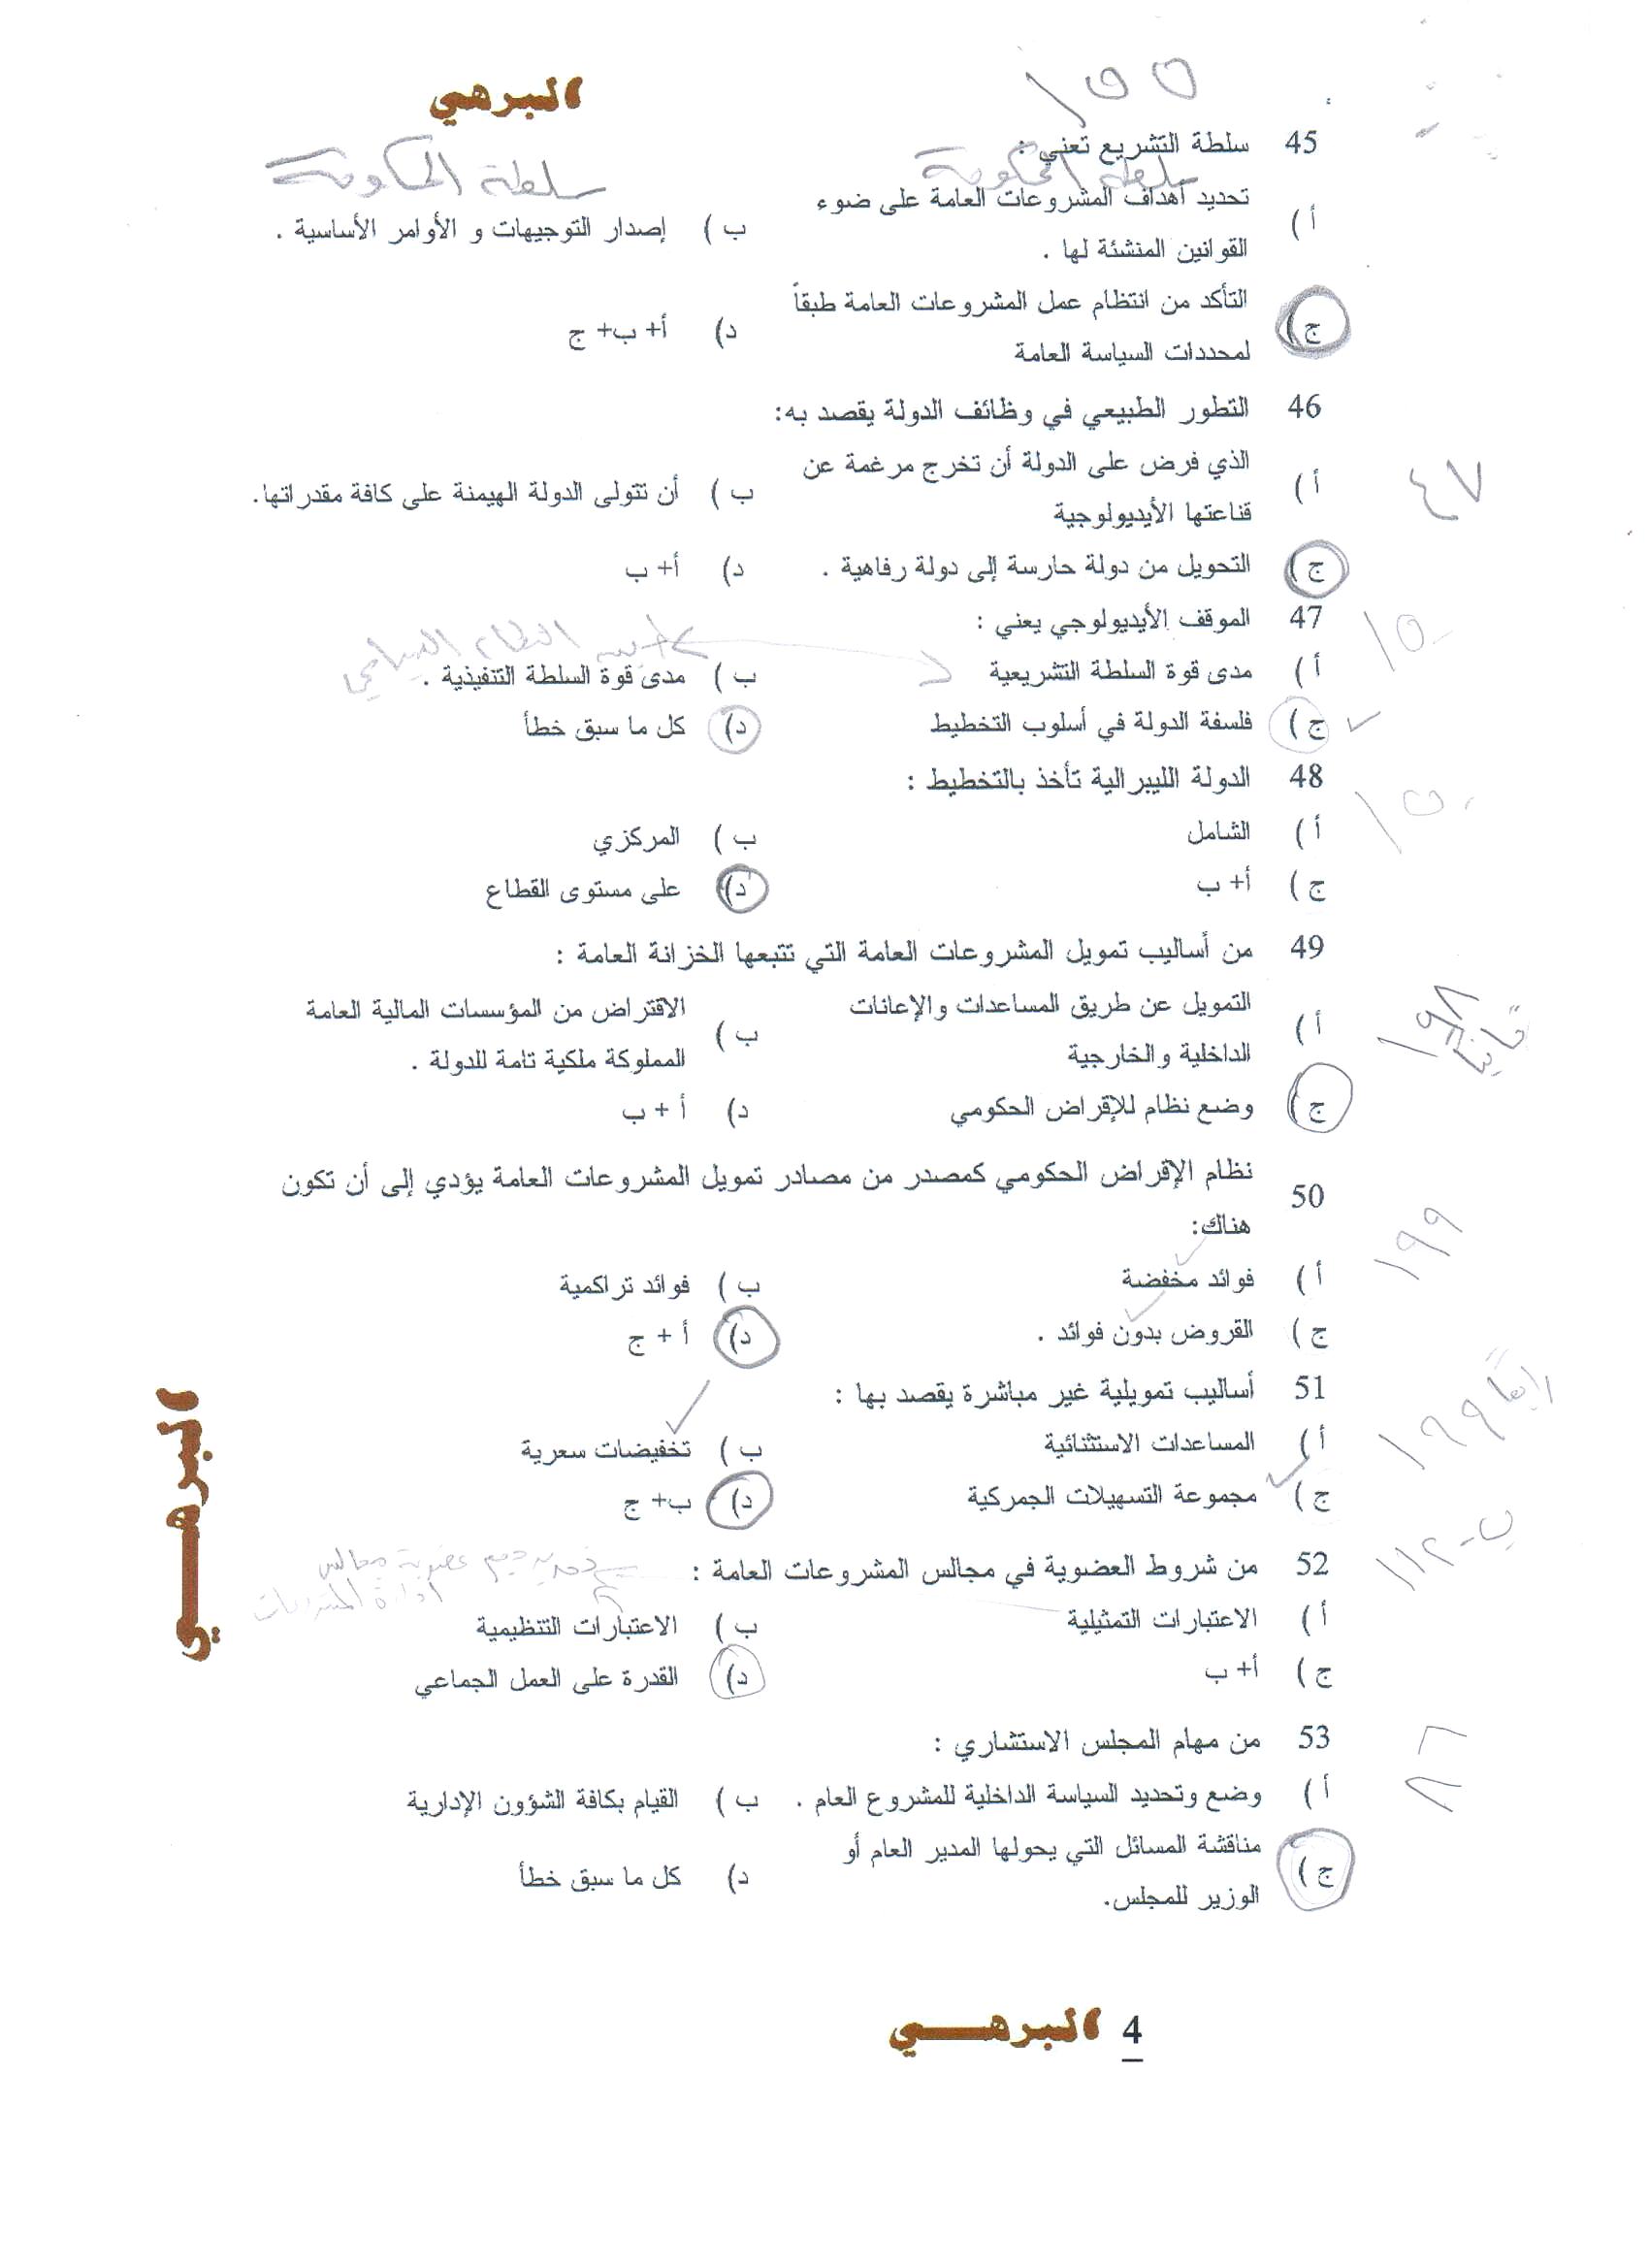 البرهي
١٥٥
45 سلطة التشريع تعني :
سلطة الحكومة سلطة الحكومة
أ ) تحديد أهداف المشروعات العامة على ضوء القوانين المنشئة لها .
ب ) إصدار التوجيهات و الأوامر الأساسية .
ج ) التأكد من انتظام عمل المشروعات العامة طبقاً لمحددات السياسة العامة
د) أ+ ب+ ج
46 التطور الطبيعي في وظائف الدولة يقصد به:
أ ) الذي فرض على الدولة أن تخرج مرغمة عن قناعتها الأيديولوجية
ب ) أن تتولى الدولة الهيمنة على كافة مقدراتها.
٤٧
ج ) التحويل من دولة حارسة إلى دولة رفاهية .
د) أ+ ب
47 الموقف الأيديولوجي يعني :
١٥٠
النظام السياسي
أ ) مدى قوة السلطة التشريعية
ب ) مدى قوة السلطة التنفيذية .
ج ) فلسفة الدولة في أسلوب التخطيط
د) كل ما سبق خطأ
48 الدولة الليبرالية تأخذ بالتخطيط :
١٥٠
أ ) الشامل
ب ) المركزي
ج ) أ+ ب
د) على مستوى القطاع
49 من أساليب تمويل المشروعات العامة التي تتبعها الخزانة العامة :
أ ) التمويل عن طريق المساعدات والإعانات الداخلية والخارجية
ب ) الاقتراض من المؤسسات المالية العامة المملوكة ملكية تامة للدولة .
١٩٨ ثانياً
ج ) وضع نظام للإقراض الحكومي
د) أ + ب
50 نظام الإقراض الحكومي كمصدر من مصادر تمويل المشروعات العامة يؤدي إلى أن تكون
هناك:
١٩٩
أ ) فوائد مخفضة
ب ) فوائد تراكمية
ج ) القروض بدون فوائد .
د) أ + ج
51 أساليب تمويلية غير مباشرة يقصد بها :
١٩٩ رابعاً
أ ) المساعدات الاستثنائية
ب ) تخفيضات سعرية
ج ) مجموعة التسهيلات الجمركية
د) ب+ ج
52 من شروط العضوية في مجالس المشروعات العامة :
ب - ١١٢
عضوية مجالس
ادارة المشروعات
أ ) الاعتبارات التمثيلية
ب ) الاعتبارات التنظيمية
ج ) أ+ ب
د) القدرة على العمل الجماعي
53 من مهام المجلس الاستشاري :
٨٦
أ ) وضع وتحديد السياسة الداخلية للمشروع العام .
ب ) القيام بكافة الشؤون الإدارية
ج ) مناقشة المسائل التي يحولها المدير العام أو الوزير للمجلس.
د) كل ما سبق خطأ
البرهي
4 البرهي